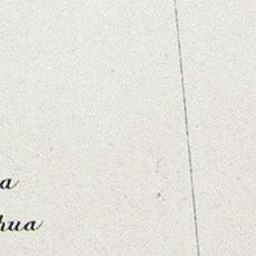 a
hua